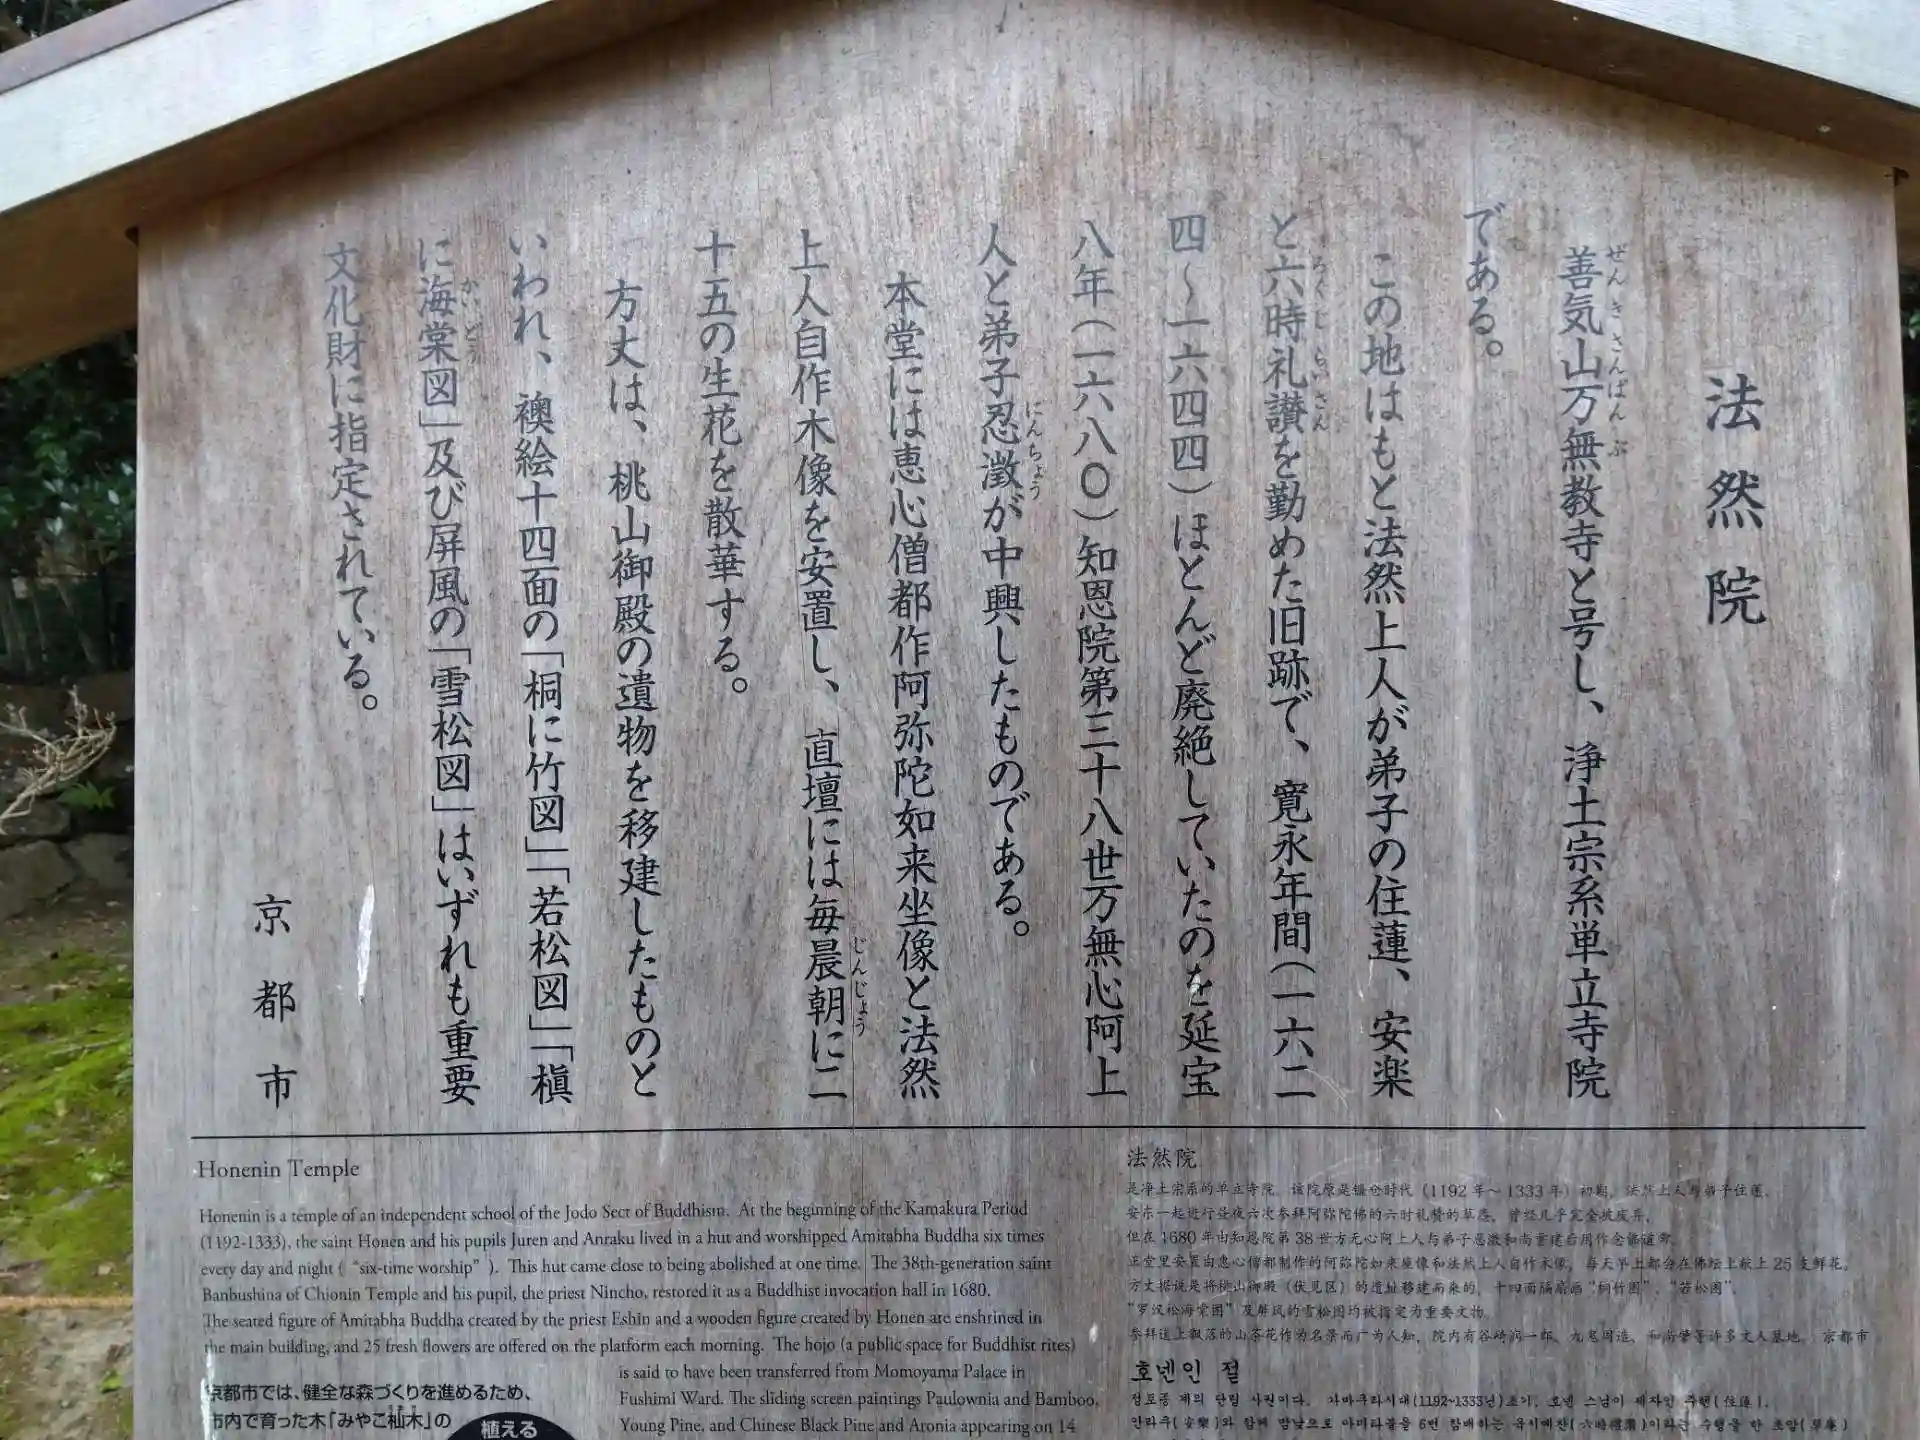 法然院
善気山万無教寺と号し、浄土宗系単立寺院
である。
この地はもと法然上人が弟子の住蓮、安楽
と六時礼讃を勤めた旧跡で、寛永年間（一六二
四〜一六四四）ほとんど廃絶していたのを延宝
八年（一六八〇）知恩院第三十八世万無心阿上
人と弟子忍澂が中興したものである。
本堂には恵心僧都作阿弥陀如来坐像と法然
上人自作木像を安置し、直壇には毎晨朝に二
十五の生花を散華する。
方丈は、桃山御殿の遺物を移建したものと
いわれ、襖絵十四面の「桐に竹図」「若松図」「槇
に海棠図」及び屏風の「雪松図」はいずれも重要
文化財に指定されている。
京都市
Honenin Temple
Honenin is a temple of an independent school of the Jodo Sect of Buddhism. At the beginning of the Kamakura Period
(1192-1333), the saint Honen and his pupils Juren and Anraku lived in a hut and worshipped Amitabha Buddha six times
every day and night ( “six-time worship” ). This hut came close to being abolished at one time. The 38th-generation saint
Banbushina of Chionin Temple and his pupil, the priest Nincho, restored it as a Buddhist invocation hall in 1680.
The seated figure of Amitabha Buddha created by the priest Eshin and a wooden figure created by Honen are enshrined in
the main building, and 25 fresh flowers are offered on the platform each morning. The hojo (a public space for Buddhist rites)
is said to have been transferred from Momoyama Palace in
Fushimi Ward. The sliding screen paintings Paulownia and Bamboo,
Young Pine, and Chinese Black Pine and Aronia appearing on 14
京都市では、健全な森づくりを進めるため、
市内で育った木「みやこ杣木」の
植える
法然院
是净土宗系的单立寺院。该院原是镰仓时代（1192年～1333年）初期，法然上人与弟子住莲、
安乐一起进行昼夜六次参拜阿弥陀佛的六时礼赞的草庵，曾经几乎完全被废弃，
但在1680年由知恩院第38世万无心阿上人与弟子忍澂和尚重建后用作念佛道场。
正堂里安置由惠心僧都制作的阿弥陀如来座像和法然上人自作木像，每天早上都会在佛坛上献上25支鲜花。
方丈据说是将桃山御殿（伏见区）的遗址移建而来的，十四面隔扇画“桐竹图”、“若松图”、
“罗汉松海棠图”及屏风的雪松图均被指定为重要文物。
参拜道上飘落的山茶花作为名景而广为人知，院内有谷崎润一郎、九鬼周造、和尚肇等许多文人墓地。 京都市
호넨인 절
정토종 계의 단립 사원이다. 가마쿠라시대(1192~1333년)초기, 호넨 스님이 제자인 주렌(住蓮),
안라쿠(安樂)와 함께 밤낮으로 아미타불을 6번 참배하는 육시예찬(六時禮讚)이라는 수행을 한 초암(草庵)